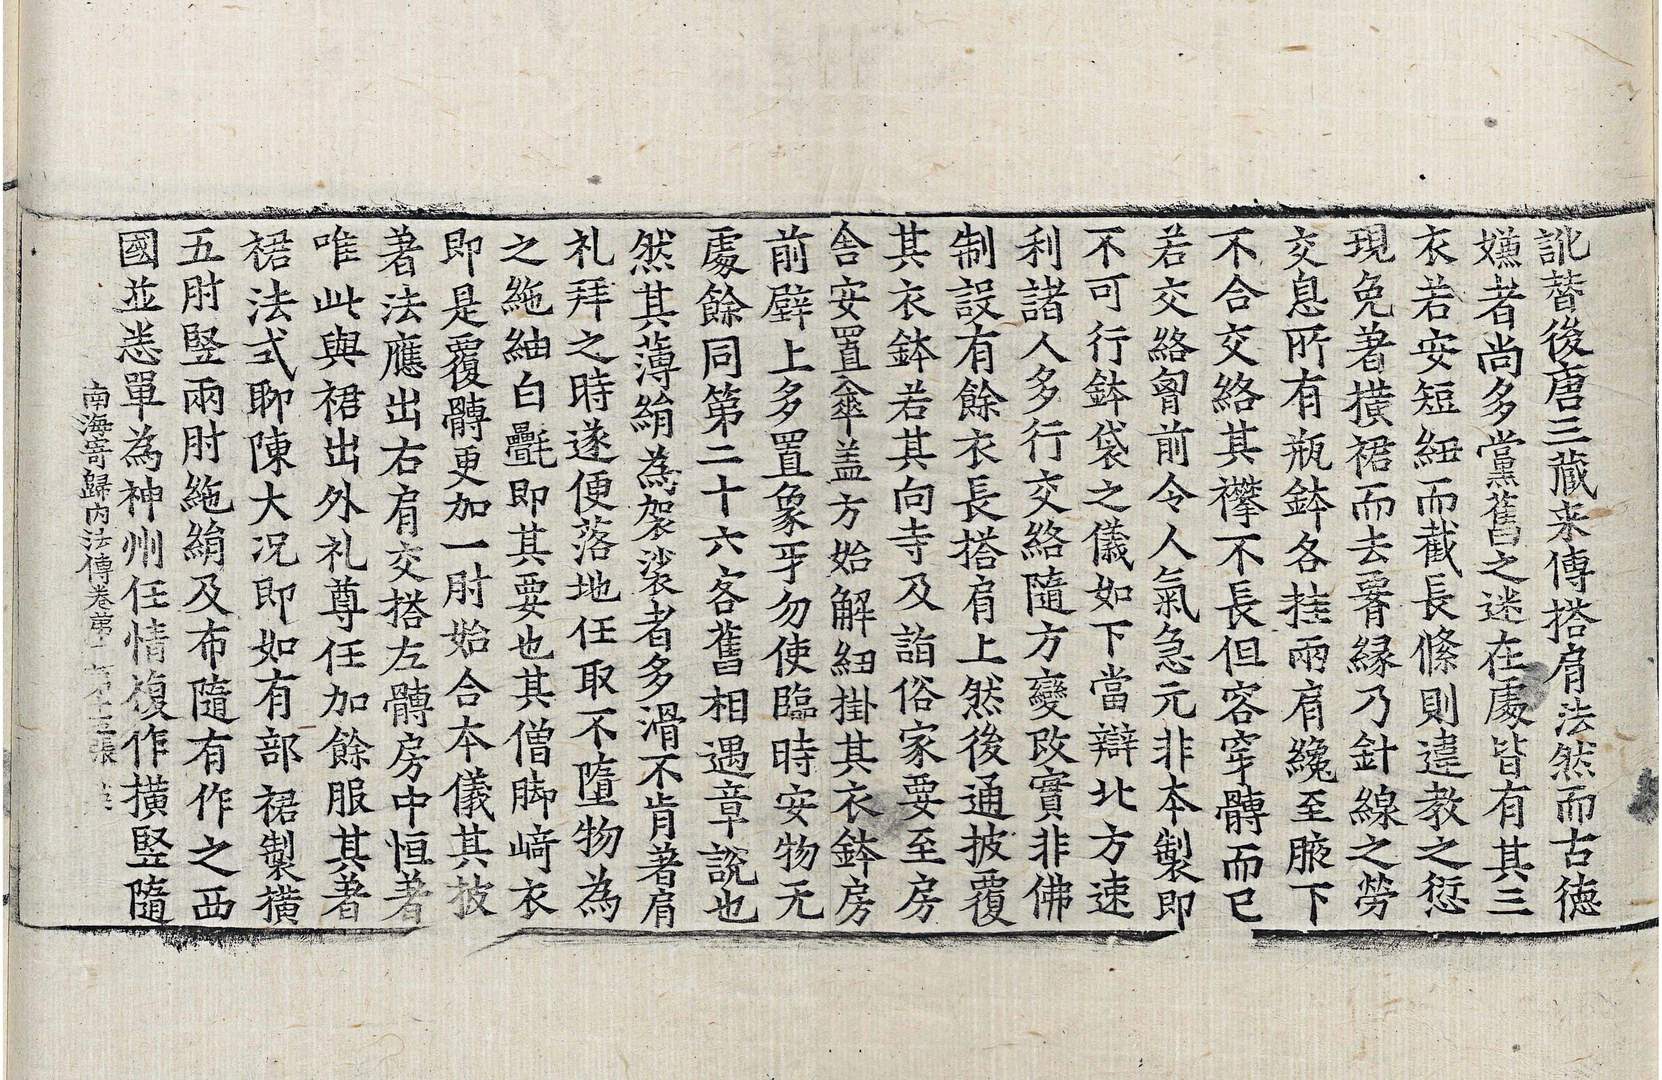 訛替後唐三藏来傳搭肩法然而古德
嫌者尚多黨舊之迷在處皆有其三
衣若安短紐而截長絛則違教之愆
現免著橫裙而去𦝫縁乃針線之勞
交息所有瓶鉢各挂兩肩纔至腋下
不合交絡其襻不長但容穿髆而已
若交絡胷前令人氣急元非本製即
不可行鉢袋之儀如下當辯北方速
利諸人多行交絡隨方變改實非佛
制設有餘衣長搭肩上然後通披覆
其衣鉢若其向寺及詣俗家要至房
舎安置傘盖方始解紐掛其衣鉢房
前壁上多置象牙勿使臨時安物无
處餘同第二十六客舊相遇章說也
然其薄絹為袈裟者多滑不肯著肩
礼拜之時遂便落地任取不墮物為
之絁紬白㲲即其要也其僧脚﨑衣
即是覆髆更加一肘始合本儀其披
著法應出右肩交搭左髆房中恒著
唯此與裙出外礼尊任加餘服其著
裙法式聊陳大况即如有部裙製橫
五肘竪兩肘絁絹及布隨有作之西
國並悉單為神州任情複作橫竪隨
南海寄歸内法傳卷第二 張